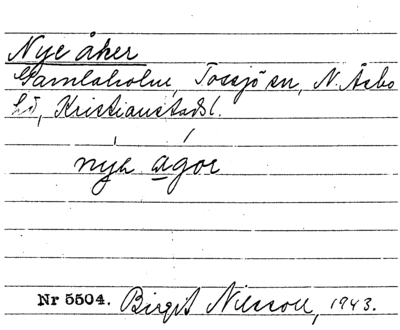 Nye åker
Gamlaholm, Tossjö sn, N. Åsbo
hd, Kristianstads l.
nyh agor
Nr 5504. Birgit Nilsson, 1943.